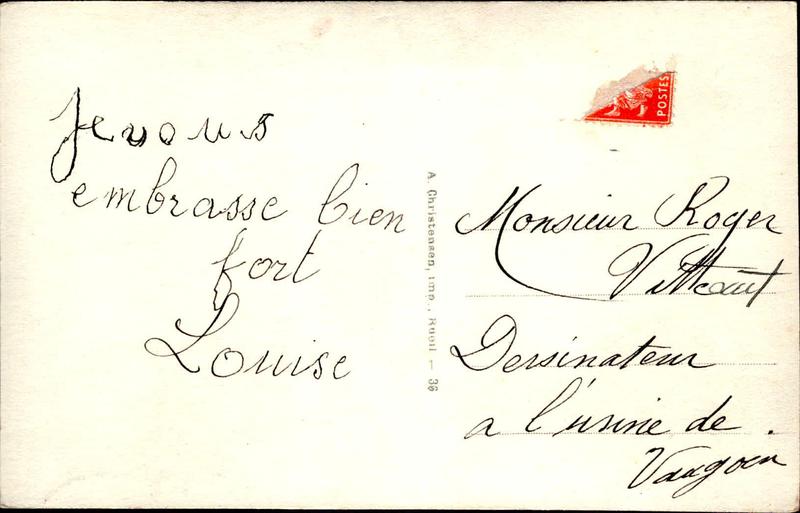 Je vous
embrasse bien
fort
Louise
A. Christensen, imp., Rueil — 36
POSTES
Monsieur Roger
Dersinateur
a l'usine de